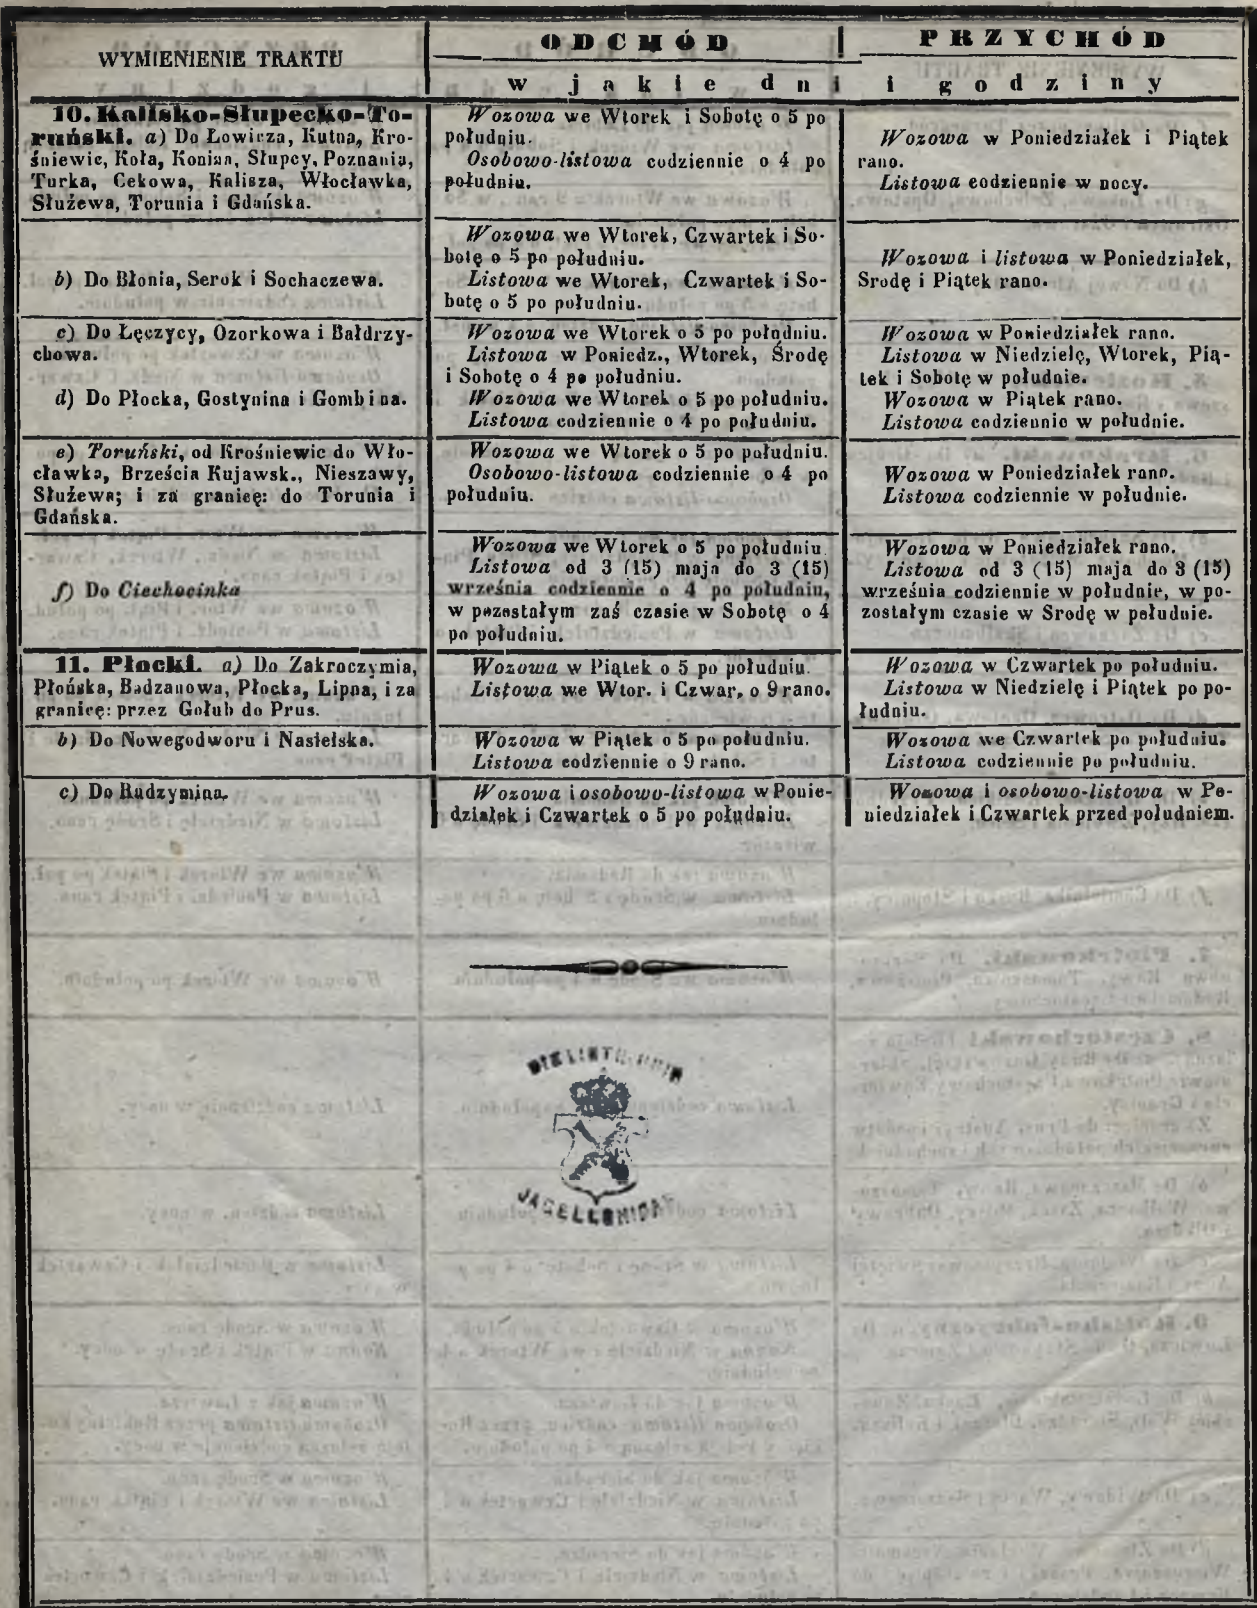 WYMIENIENIE TRAKTU
ODCHÓD
PRZYCHÓD
w jakie dni i godziny
10. Kalisko-Słupecko-To-
ruński. a) Do Łowicza, Kutna, Kro-
śniewic, Koła, Konina, Słupcy, Poznania,
Turka, Cekowa, Kalisza, Włocławka,
Służewa, Torunia i Gdańska.
Wozowa we Wtorek i Sobotę o 5 po
południu.
Osobowo-listowa codziennie o 4 po
południu.
Wozowa w Poniedziałek i Piątek
rano.
Listowa codziennie w nocy.
b) Do Błonia, Serok i Sochaczewa.
Wozowa we Wtorek, Czwartek i So-
botę o 5 po południu.
Listowa we Wtorek, Czwartek i So-
botę o 5 po południu.
Wozowa i listowa w Poniedziałek,
Srodę i Piątek rano.
c) Do Łęczycy, Ozorkowa i Bałdrzy-
chowa.
Wozowa we Wtorek o 5 po południu.
Listowa w Poniedz., Wtorek, Środę
i Sobotę o 4 po południu.
Wozowa w Poniedziałek rano.
Listowa w Niedzielę, Wtorek, Pią-
tek i Sobotę w południe.
d) Do Płocka, Gostynina i Gombina.
Wozowa we Wtorek o 5 po południu.
Listowa codziennie o 4 po południu.
Wozowa w Piątek rano.
Listowa codziennie w południe.
e) Toruński, od Krośniewic do Wło-
cławka, Brześcia Kujawsk., Nieszawy,
Służewa; i za granicę: do Torunia i
Gdańska.
Wozowa we Wtorek o 5 po południu.
Osobowo-listowa codziennie o 4 po
południu.
Wozowa w Poniedziałek rano.
Listowa codziennie w południe.
f) Do Ciechocinka
Wozowa we Wtorek o 5 po południu
Listowa od 3 (15) maja do 3 (15)
września codziennie o 4 po południu,
w pozostałym zaś czasie w Sobotę o 4
po południu.
Wozowa w Poniedziałek rano.
Listowa od 3 (15) maja do 3 (15)
września codziennie w południe, w po-
zostałym czasie w Srodę w południe.
11. Płocki. a) Do Zakroczymia,
Płońska, Badzanowa, Płocka, Lipna, i za
granicę: przez Gołub do Prus.
Wozowa w Piątek o 5 po południu.
Listowa we Wtor. i Czwar. o 9 rano.
Wozowa w Czwartek po południu.
Listowa w Niedzielę i Piątek po po-
łudniu.
b) Do Nowegodworu i Nasielska.
Wozowa w Piątek o 5 po południu.
Listowa codziennie o 9 rano.
Wozowa we Czwartek po południu.
Listowa codziennie po południu.
c) Do Radzymina.
Wozowa i osobowo-listowa w Ponie-
działek i Czwartek o 5 po południu.
Wozowa i osobowo-listowa w Po-
niedziałek i Czwartek przed południem.
JAGELLONICA